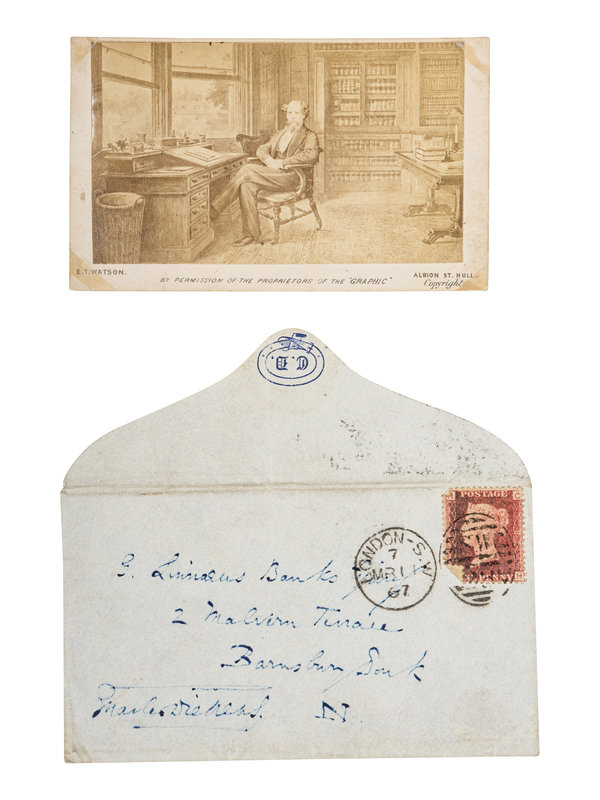 E.T. WATSON.
BY PERMISSION OF THE PROPRIETORS OF THE "GRAPHIC"
ALBION ST. HULL.
Copyright
C.D.
POSTAGE
LONDON-S.W
7
MR 1
67
G. Linnaeus Banks
2 Malvern Terrace
Barnsbury Park
Charles Dickens.
N.